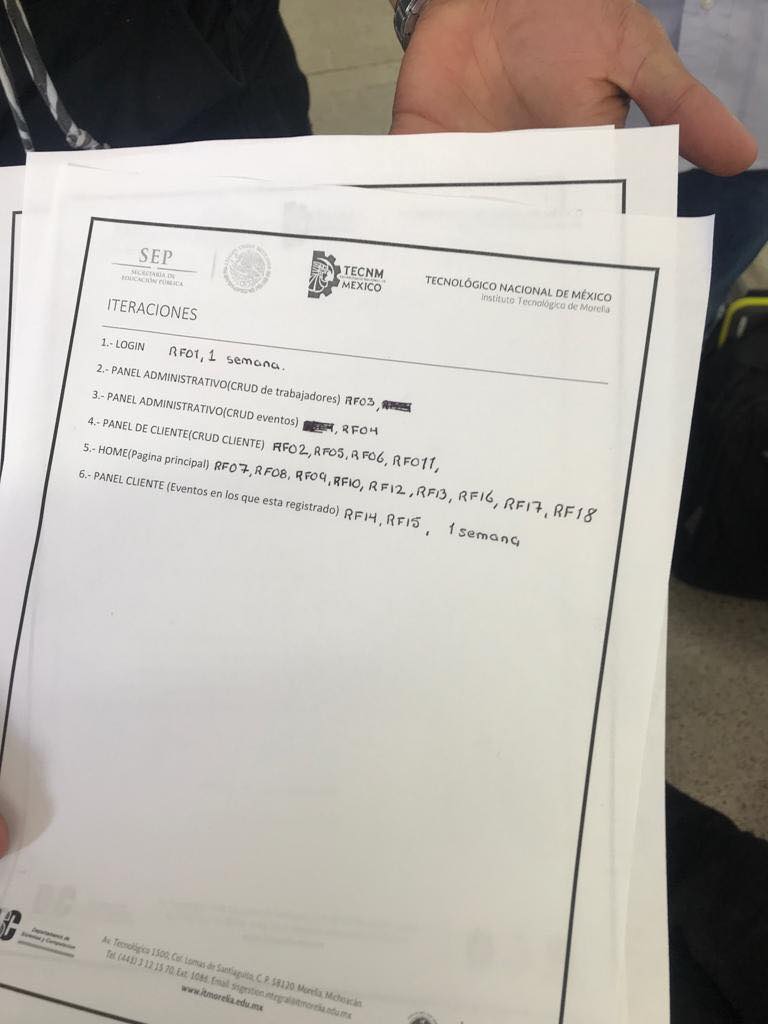 SEP
SECRETARÍA DE
EDUCACIÓN PÚBLICA
TECNM
MÉXICO
TECNOLÓGICO NACIONAL DE MÉXICO
Instituto Tecnológico de Morelia
ITERACIONES
1.- LOGIN RF01, 1 semana.
2.- PANEL ADMINISTRATIVO(CRUD de trabajadores) RF03,
3.- PANEL ADMINISTRATIVO(CRUD eventos) , RF04
4.- PANEL DE CLIENTE(CRUD CLIENTE) RF02, RF05, RF06, RF011,
5.- HOME(Pagina principal) RF07, RF08, RF09, RF10, RF12, RF13, RF16, RF17, RF18
6.- PANEL CLIENTE (Eventos en los que esta registrado) RF14, RF15, 1 semana
Departamento de
Sistemas y Computación
Av. Tecnológico 1500, Col. Lomas de Santiaguito, C. P. 58120, Morelia, Michoacán
Tel. (443) 3 12 15 70, Ext. 1086, Email. sisgestion.integral@itmorelia.edu.mx
www.itmorelia.edu.mx